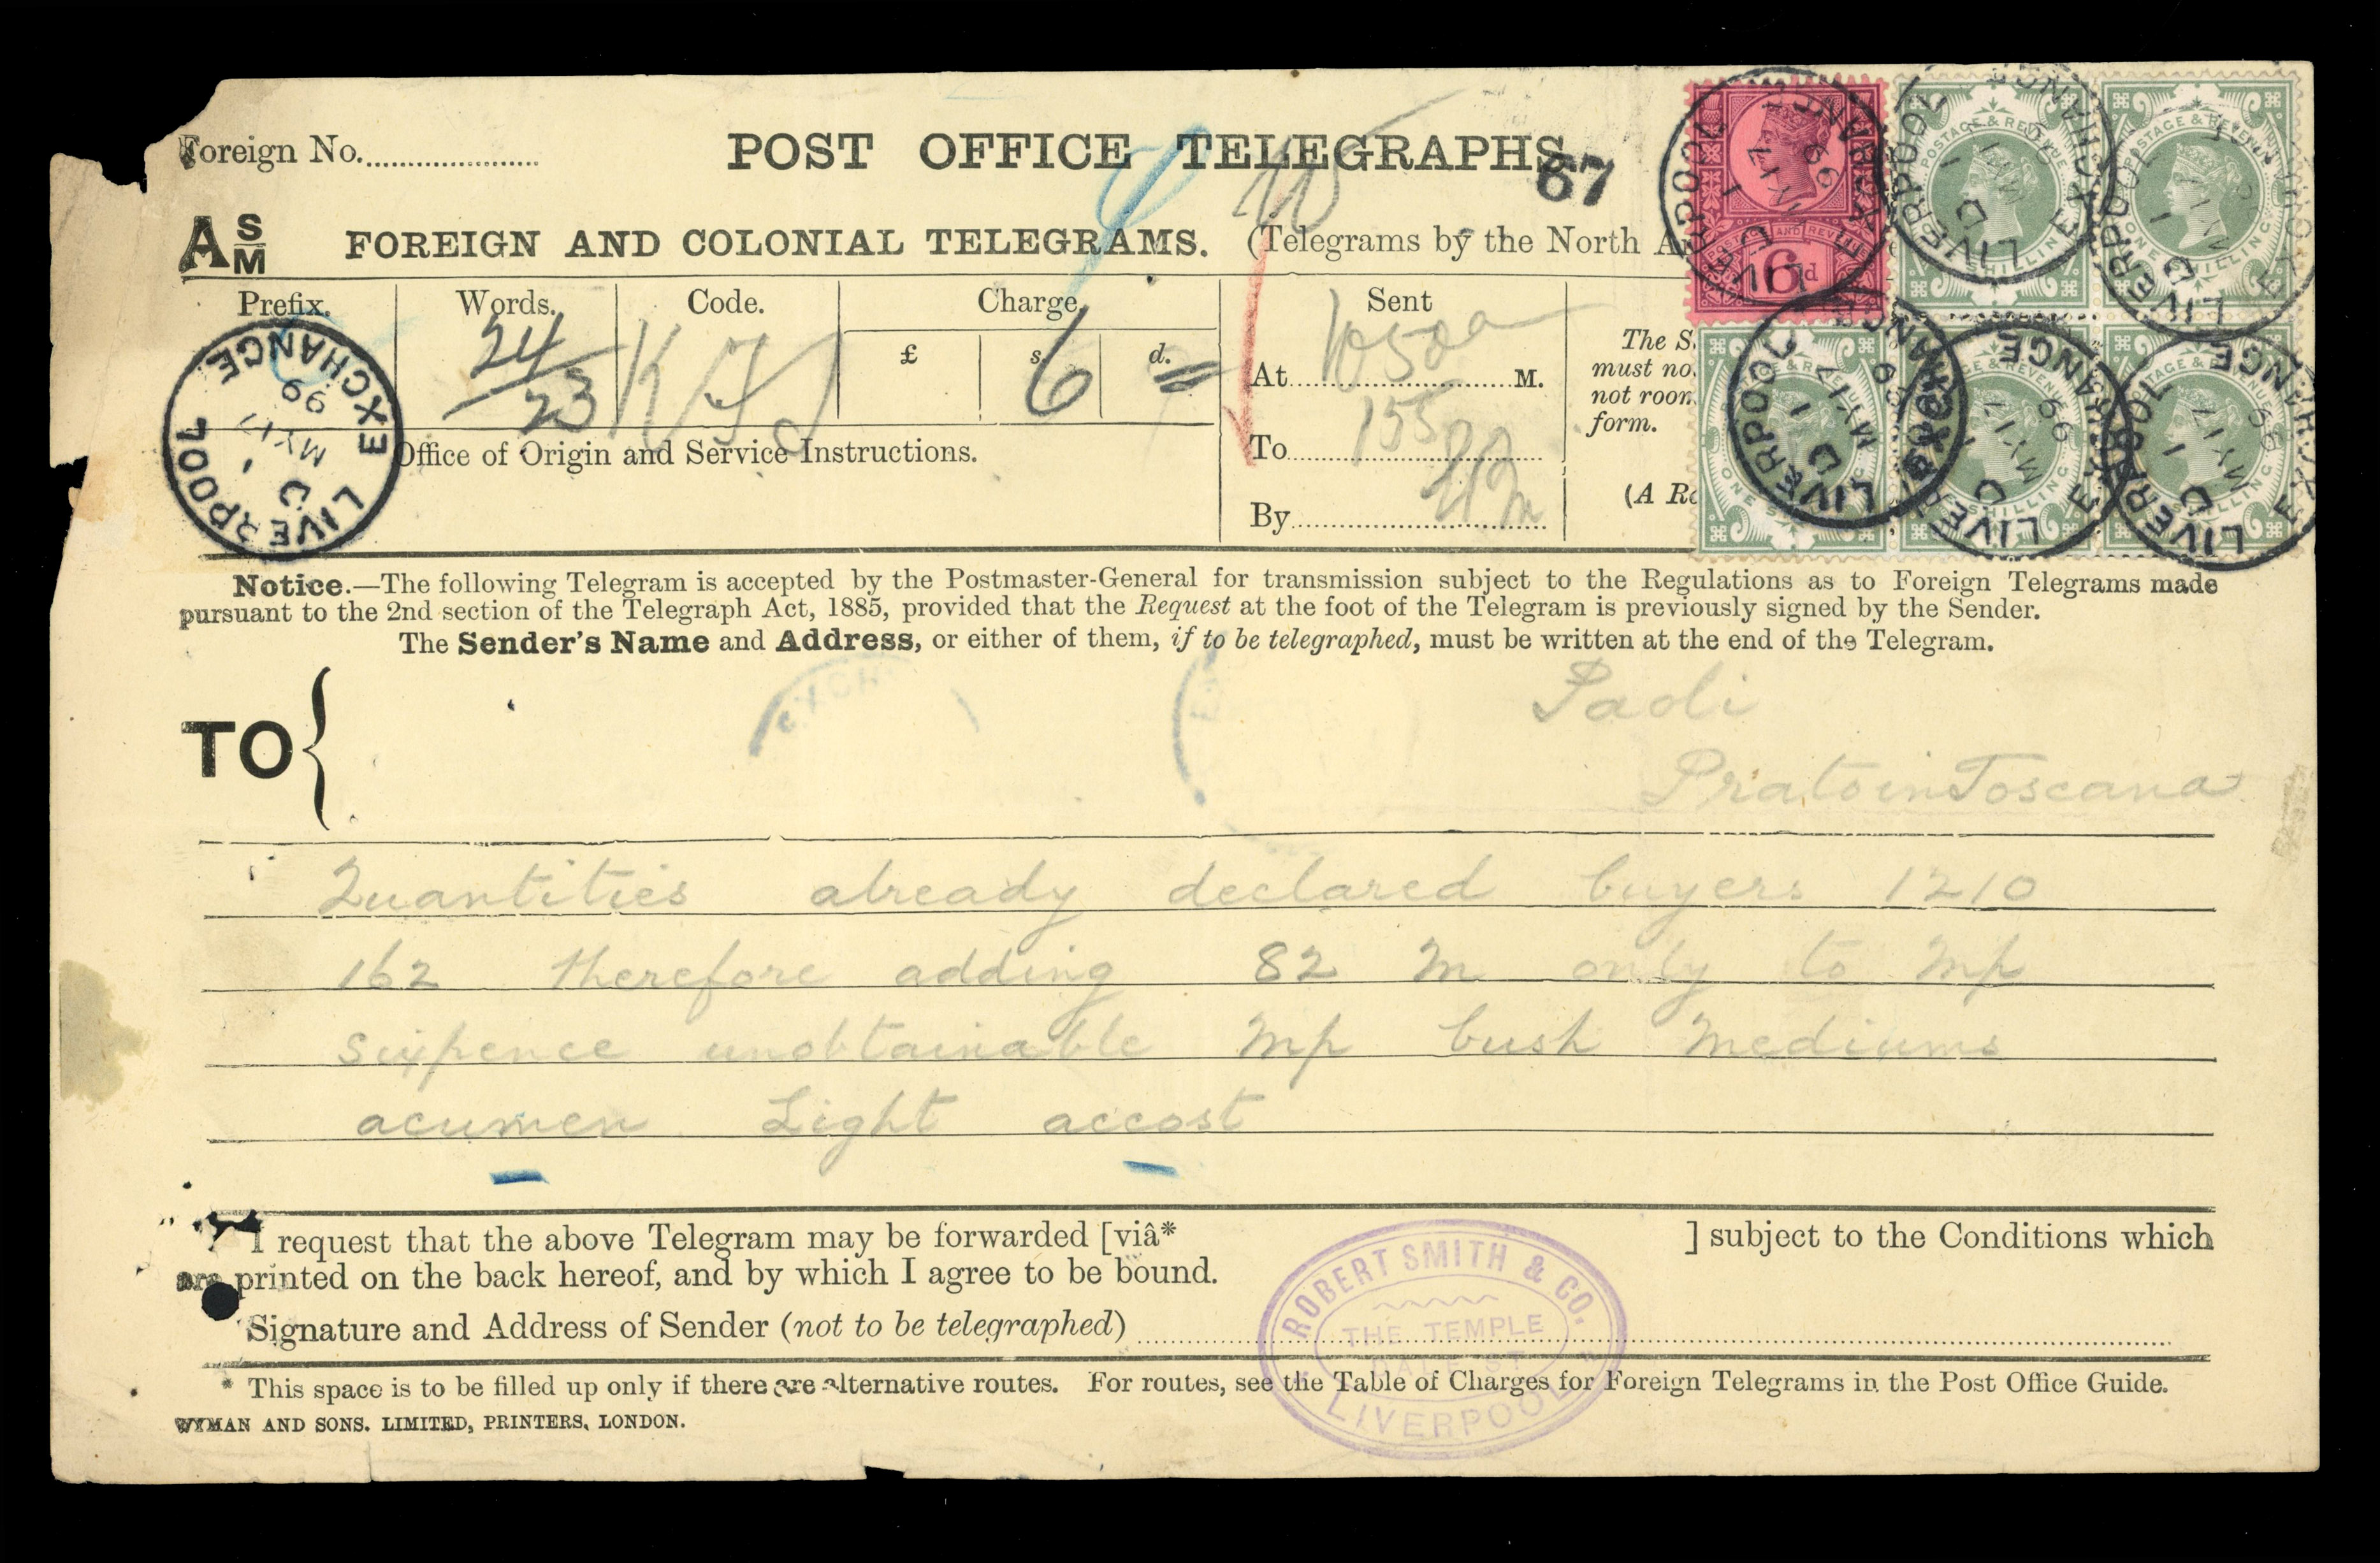 Foreign No.
POST OFFICE TELEGRAPHS.
67
A S M
FOREIGN AND COLONIAL TELEGRAMS.
(Telegrams by the North A
Prefix.
Words.
Code.
Charge.
Sent
24
23
£
s.
d.
6
At
1050a
M.
To
155
By
The S
must no
not room
form.
(A Re
Office of Origin and Service Instructions.
LIVERPOOL EXCHANGE
C
MY 17
99
POSTAGE AND REVENUE
6d
POSTAGE & REVENUE
ONE SHILLING
LIVERPOOL EXCHANGE
D 1
MY 17
99
Notice.—The following Telegram is accepted by the Postmaster-General for transmission subject to the Regulations as to Foreign Telegrams made
pursuant to the 2nd section of the Telegraph Act, 1885, provided that the Request at the foot of the Telegram is previously signed by the Sender.
The Sender's Name and Address, or either of them, if to be telegraphed, must be written at the end of the Telegram.
TO
Paoli
PratoinToscana
Quantities already declared buyers 1210
162 therefore adding 82 M only to Mp
sixpence unobtainable Mp bush Mediums
acumen Light accost
I request that the above Telegram may be forwarded [viâ* ] subject to the Conditions which
are printed on the back hereof, and by which I agree to be bound.
Signature and Address of Sender (not to be telegraphed)
ROBERT SMITH & CO.
THE TEMPLE
DALE ST
LIVERPOOL
* This space is to be filled up only if there are alternative routes. For routes, see the Table of Charges for Foreign Telegrams in the Post Office Guide.
WYMAN AND SONS. LIMITED, PRINTERS, LONDON.